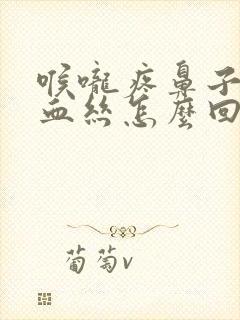 喉嚨疼鼻子
血絲怎麼回
葡萄v